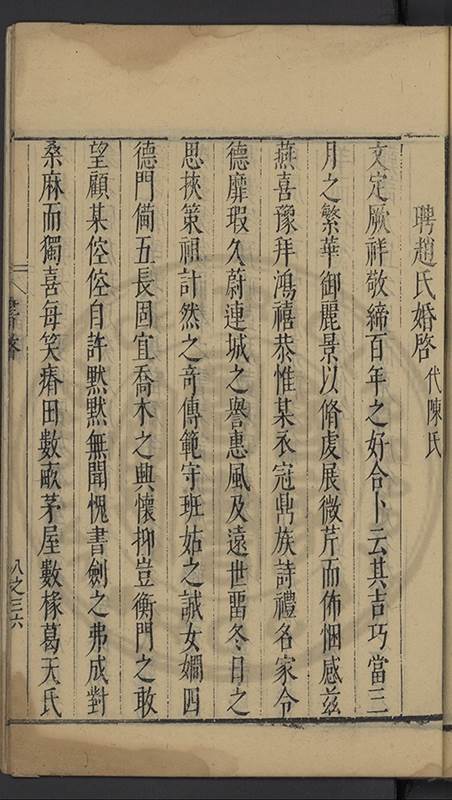 聘趙氏婚啓 代陳氏
文定厥祥敬締百年之好合卜云其吉巧當三
月之繁華御麗景以脩虔展微芹而佈悃感兹
燕喜豫拜鴻禧恭惟某衣冠鼎族詩禮名家令
德靡瑕久蔚連城之譽惠風及遠世畱冬日之
思挾策祖計然之奇傳範守班姑之誡女嫺四
德門備五長固宜喬木之興懷抑豈衡門之敢
望顧某倥倥自許黙黙無聞愧書劍之弗成對
桑麻而獨喜每笑瘠田數畝茅屋數椽葛天氏
八之三六